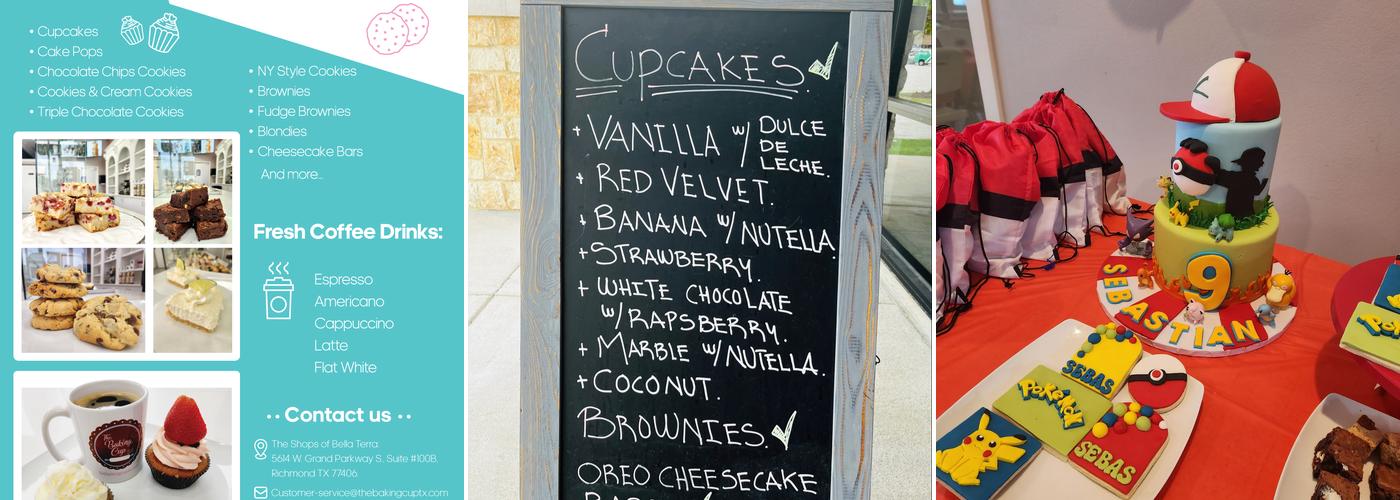 • Cupcakes
• Cake Pops
• Chocolate Chips Cookies
• Cookies & Cream Cookies
• Triple Chocolate Cookies
• NY Style Cookies
• Brownies
• Fudge Brownies
• Blondies
• Cheesecake Bars
And more...
Fresh Coffee Drinks:
Espresso
Americano
Cappuccino
Latte
Flat White
The
Baking
Cup
•• Contact us ••
The Shops of Bella Terra:
5614 W. Grand Parkway S. Suite #100B,
Richmond TX 77406.
Customer-service@thebakingcuptx.com
CUPCAKES.
+ VANILLA w/ DULCE
DE
LECHE.
+ RED VELVET.
+ BANANA w/ NUTELLA.
+ STRAWBERRY.
+ WHITE CHOCOLATE
w/ RAPSBERRY.
+ MARBLE w/ NUTELLA.
+ COCONUT.
BROWNIES.
OREO CHEESECAKE
9
SEBASTIAN
SEBAS
POKéMON
SEBAS